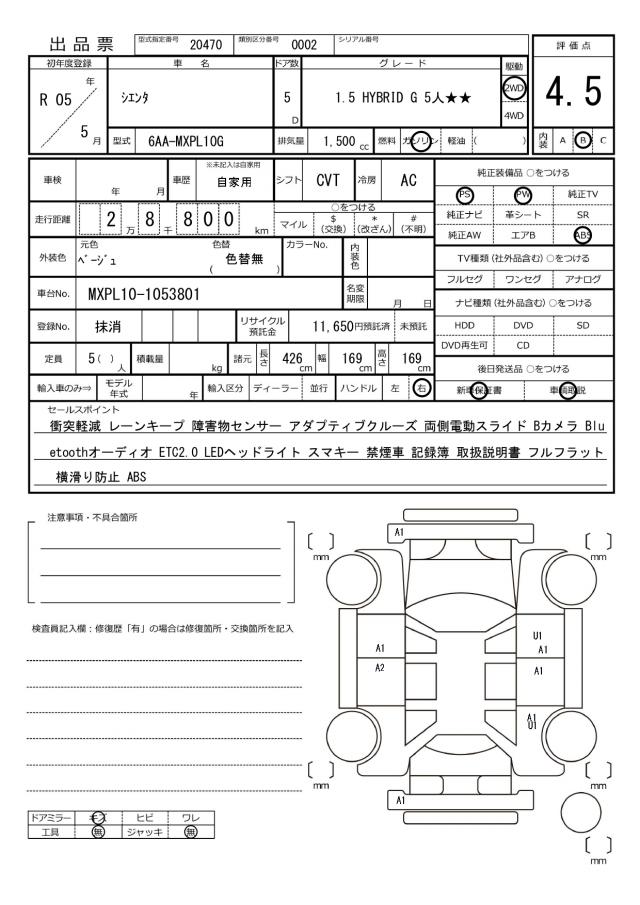 出品票 型式指定番号 20470 類別区分番号 0002 シリアル番号
初年度登録 車名 ドア数 グレード 駆動 評価点
R 05 年 5 月 シエンタ 5 D 1.5 HYBRID G 5人★★ 2WD 4WD 4.5
型式 6AA-MXPL10G 排気量 1,500 cc 燃料 ガソリン 軽油 ( ) 内装 A B C
車検 年 月 車歴 ※未記入は自家用 自家用 シフト CVT 冷房 AC
走行距離 2 万 8 千 8 0 0 km ○をつける マイル $ (交換) * (改ざん) # (不明)
外装色 元色 ベージュ 色替 ( 色替無 ) カラーNo. 内装色
車台No. MXPL10-1053801 名変期限 月 日
登録No. 抹消 リサイクル預託金 11,650円預託済 未預託
定員 5 ( ) 人 積載量 kg 諸元 長さ 426 cm 幅 169 cm 高さ 169 cm
輸入車のみ⇒ モデル年式 年 輸入区分 ディーラー 並行 ハンドル 左 右
純正装備品 ○をつける
PS PW 純正TV
純正ナビ 革シート SR
純正AW エアB ABS
TV種類(社外品含む) ○をつける
フルセグ ワンセグ アナログ
ナビ種類(社外品含む) ○をつける
HDD DVD SD
DVD再生可 CD
後日発送品 ○をつける
新車保証書 車輌取説
セールスポイント
衝突軽減 レーンキープ 障害物センサー アダプティブクルーズ 両側電動スライド Bカメラ Blu
etoothオーディオ ETC2.0 LEDヘッドライト スマキー 禁煙車 記録簿 取扱説明書 フルフラット
横滑り防止 ABS
注意事項・不具合箇所
検査員記入欄：修復歴「有」の場合は修復箇所・交換箇所を記入
ドアミラー キズ ヒビ ワレ
工具 無 ジャッキ 無
A1
[ ] mm [ ] mm
U1
A1 A1
A2 A1
A1
U1
[ ] mm [ ] mm
A1
[ ] mm